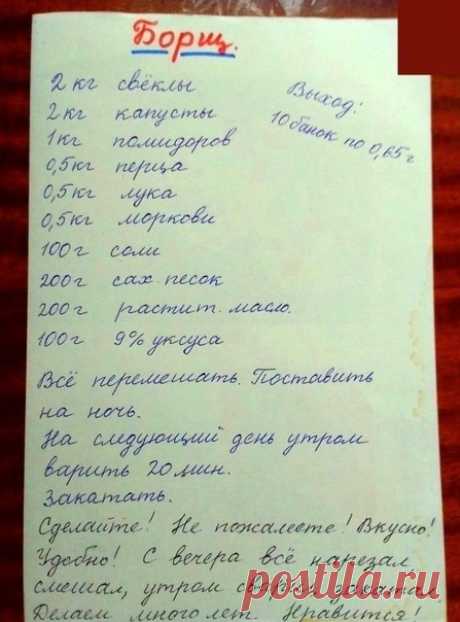 Борщ.
2 кг свёклы
2 кг капусты
1 кг помидоров
0,5 кг перца
0,5 кг лука
0,5 кг моркови
100 г соли
200 г сах. песок
200 г растит. масло.
100 г 9% уксуса
Выход:
10 банок по 0,65 г
Всё перемешать. Поставить
на ночь.
На следующий день утром
варить 20 мин.
Закатать.
Сделайте! Не пожалеете! Вкусно!
Удобно! С вечера всё нарезал,
смешал, утром
Делаем много лет. Нравится!
postila.ru